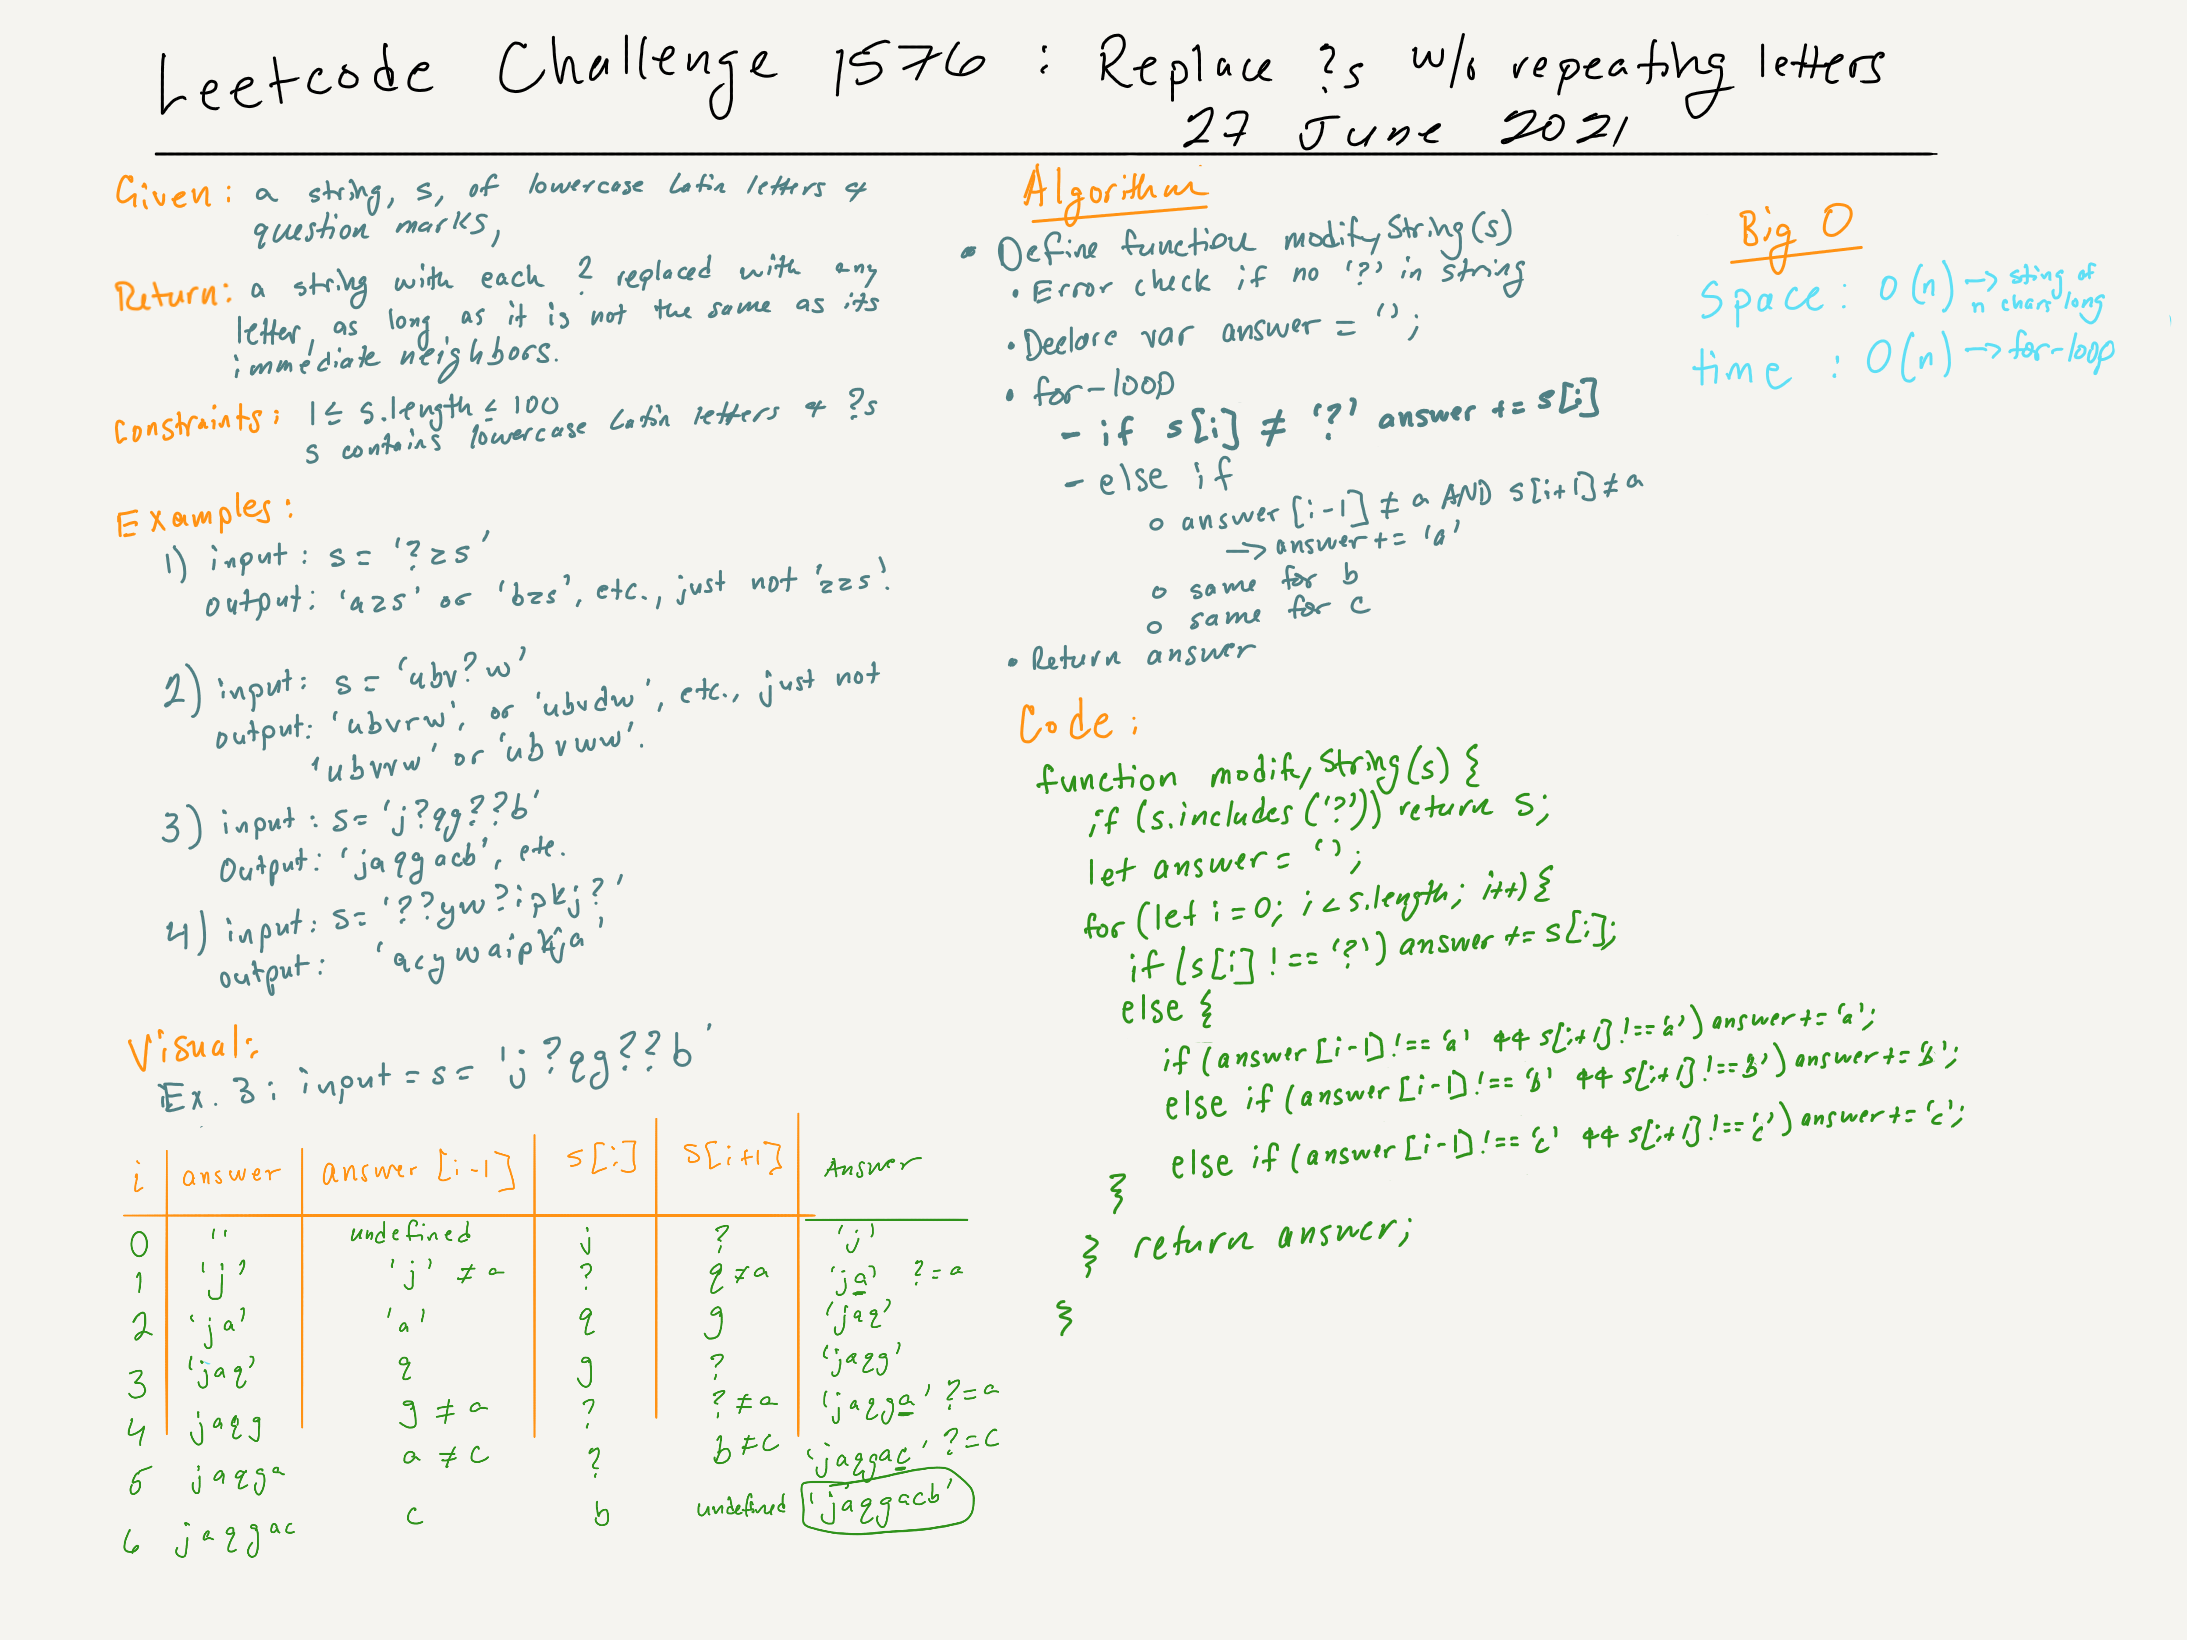 Leetcode Challenge 1576 : Replace ?s w/o repeating letters
27 June 2021
Given: a string, s, of lowercase Latin letters &
question marks,
Return: a string with each ? replaced with any
letter, as long as it is not the same as its
immediate neighbors.
Constraints: 1 ≤ s.length ≤ 100
s contains lowercase Latin letters & ?s
Examples:
1) input: s = '?zs'
output: 'azs' or 'bzs', etc., just not 'zzs'.
2) input: s = 'ubv?w'
output: 'ubvrw', or 'ubvdw', etc., just not
'ubvvw' or 'ubvww'.
3) input: s= 'j?qg??b'
Output: 'jaqgacb', etc.
4) input: s= '??yw?ipkj?'
output: 'acywaipkja'
Visual:
Ex. 3: input = s = 'j?qg??b'
i answer answer [i-1] s[i] s[i+1] Answer
0 '' undefined j ? 'j'
1 'j' 'j' ≠ a ? q ≠ a 'ja' ?=a
2 'ja' 'a' q g 'jaq'
3 'jaq' q g ? 'jaqg'
4 jaqg g ≠ a ? ? ≠ a 'jaqga' ?=a
5 jaqga a ≠ c ? b ≠ c 'jaqgac' ?=c
6 jaqgac c b undefined 'jaqgacb'
Algorithm
• Define function modifyString(s)
• Error check if no '?' in string
• Declare var answer = '';
• for-loop
- if s[i] ≠ '?' answer += s[i]
- else if
o answer [i-1] ≠ a AND s[i+1] ≠ a
→ answer += 'a'
o same for b
o same for c
• Return answer
Big O
Space: O(n) → sting of
n chars long
time : O(n) → for-loop
Code:
function modifyString(s) {
if (s.includes('?')) return s;
let answer = '';
for (let i = 0; i < s.length; i++) {
if (s[i] !== '?') answer += s[i];
else {
if (answer [i-1] !== 'a' && s[i+1] !== 'a') answer += 'a';
else if (answer [i-1] !== 'b' && s[i+1] !== 'b') answer += 'b';
else if (answer [i-1] !== 'c' && s[i+1] !== 'c') answer += 'c';
}
} return answer;
}